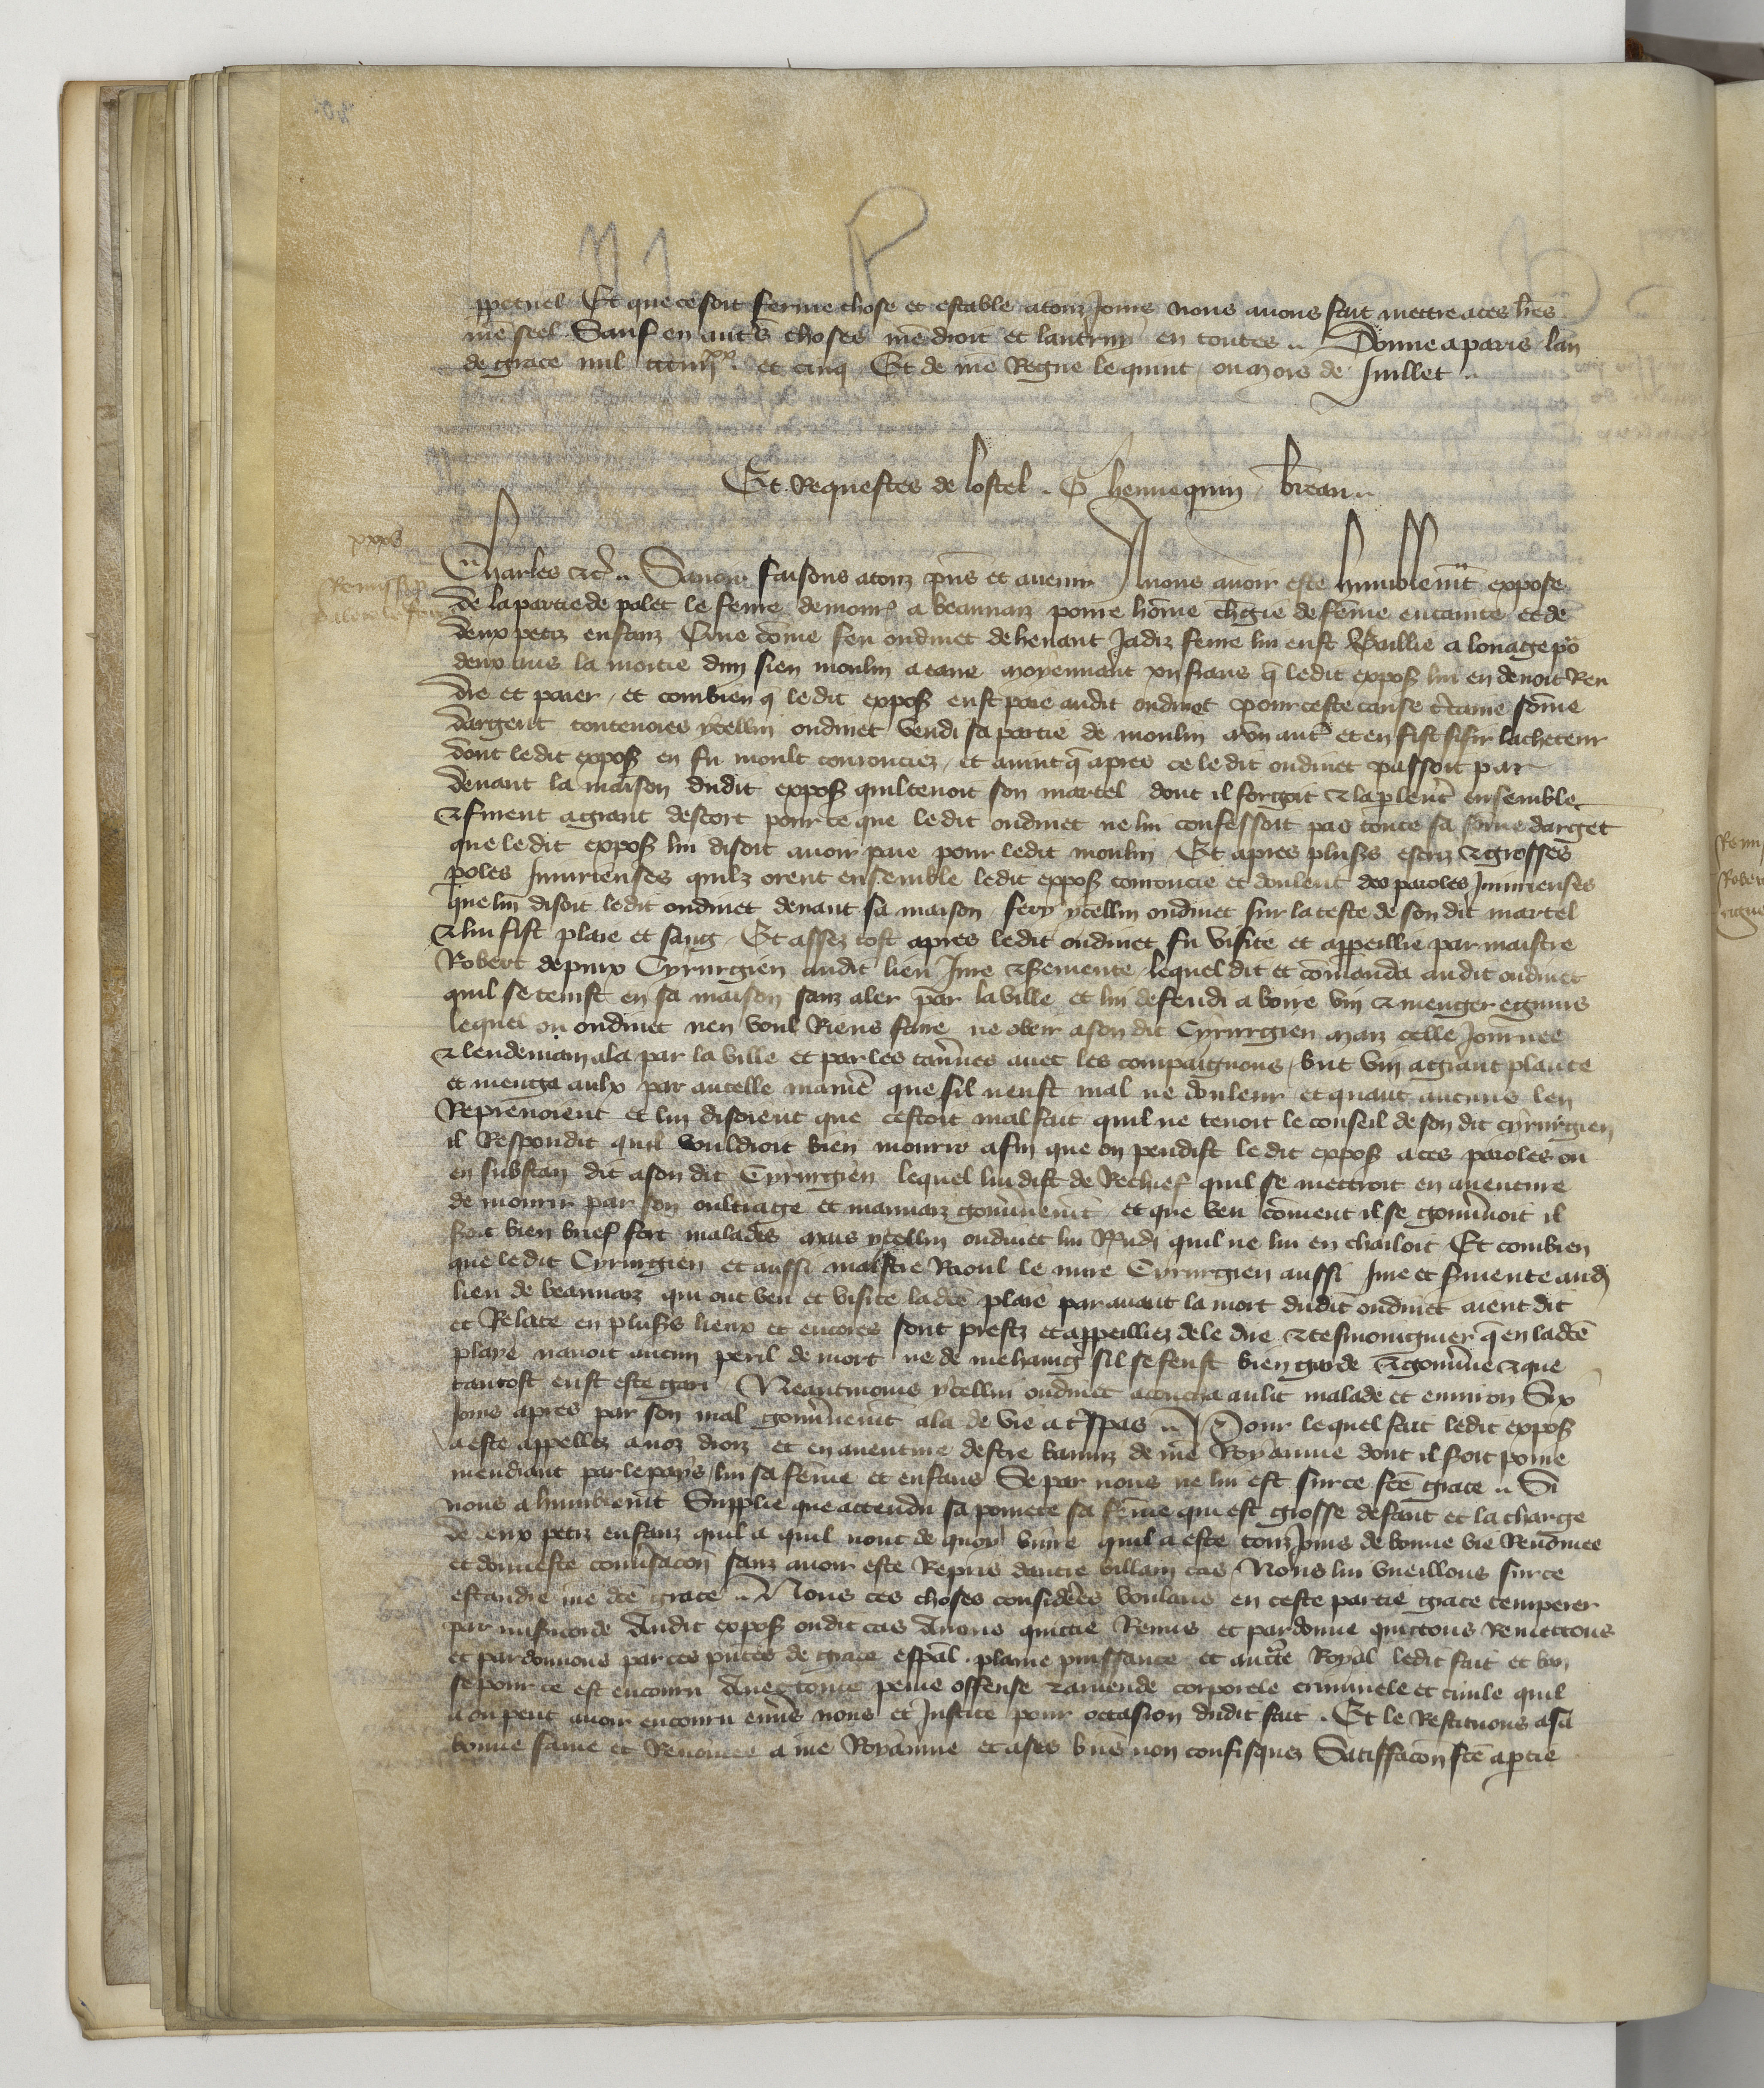 ppetuel Et que ce soit ferme chose et estable a touz jours nous avons fait mettre a ces lres
nre seel Sauf en autres choses nre droit et lautruy en toutes Donne a paris lan
de grace mil et cinq Et de nre Regne le quint ou mois de Juillet
Es Requestes de lostel G hennequin
Charles etc Savoir faisons a touz pns et avenir Nous avoir este humblement expose
de la partie de le fevre demour a beauvaiz povre home chgie de feme encainte et de
deux petiz enfanz Que come feu oudinet de jadiz feme lui eust Baillie a louage po
deux ans la moitie dun sien moulin a eaue moyennant frans q le dit expos lui en devoit Ren
dre et paier et combien q le dit expos eust paie audit oudinet pour ceste cause ctaine some
dargent toutevoies ycellui oudinet vendi sa partie de moulin a un autre et en fist lacheteur
dont le dit expos en fu moult courouciez et avint q apres ce le dit oudinet passoit par
devant la maison dudit expos quil tenoit son martel dont il forgoit et la plerent ensemble
et furent a grant descort pour ce que le dit oudinet ne lui confessoit pas toute sa some darget
que le dit expos lui disoit avoir paie pour le dit moulin Et apres pluss et grosses
poles Injurieuses quilz orent ensemble le dit expos couroucie et doulent des paroles Injurieuses
que lui disoit le dit oudinet devant sa maison fery ycellui oudinet sur la teste de son dit martel
et lui fist plaie et sang Et assez tost apres le dit oudinet fu visite et appeillie par maistre
Robert Cyrurgien audit lieu Jure et sermente lequel dit et comanda audit oudinet
quil se tenist en sa maison sanz aler par la ville et lui defendi a boire vin et menger egruns
lequel ou oudinet nen voul Riens faire ne obeir a son dit Cyrurgien maiz celle Journee
et lendemain ala par la ville et par les tavnes avec les compaignons but vin a grant plante
et menga aulx par autelle maniere que sil neust mal ne douleur et quant aucuns len
Reprenoient et lui disoient que cestoit mal fait quil ne tenoit le conseil de son dit cyrurgien
il Respondit quil vouldroit bien mourir afin que on pendist le dit expos a ces paroles ou
en substan dit a son dit Cyrurgien lequel lui dist de Rechief quil se mettroit en aventure
de mourir par son oultrage et mauvaiz gouvnement et que veu coment il se gouvnoit il
soit bien brief fort malades mais ycellui oudinet lui Rndi quil ne lui en chailoit Et combien
que le dit Cyrurgien et aussi maistre Raoul le mire Cyrurgien aussi Jure et smente aud
lieu de beauvaiz qui ont veu et visite ladce plaie par avant la mort dudit oudinet aient dit
et Relate en pluss lieux et encores sont prestz et appeilliez de le dire et tesmoingnier q en ladce
playe navoit aucun peril de mort ne de mehaing sil se feust bien garde et gouvne et que
tantost eust este gari Neantmoins ycellui oudinet acoucha au lit malade et environ Six
Jours apres par son mal gouvnement ala de vie a trspas Pour lequel fait le dit expos
a este appellez a noz droiz et en aventure destre baniz de nre Royaume dont il soit povre
mendiant par le pays lui sa feme et enfans Se par nous ne lui est sur ce fce grace Si
nous a humblement Supplie que attendu sa povrete sa feme qui est grosse denfant et la charge
de deux petiz enfanz quil a quil nont de quoy vivre quil a este touz jours de bonne vie Renomee
et donneste convsacon sanz avoir este Repris dautre villain cas Nous lui vueillons sur ce
estandre nre dce grace Nous ces choses considerees voulans en ceste partie grace temperer
par misicorde Audit expos oudit cas Avons quictie Remis et pardonne quictons Remettons
et pardonnons par ces pntes de grace espal plaine puissance et auctte Royal le dit fait et ban
se pour ce est encouru Avec toute peine offense et amende corporele criminele et civile quil
a ou peut avoir encouru envs nous et Justice pour occasion dudit fait Et le Restituons a sa
bonne fame et Renomee a nre Royaume et a ses bns non confisquez Satisfacon fce a ptie